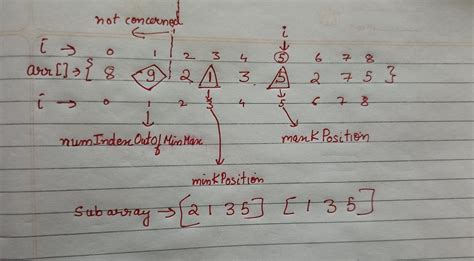 not concerned
i
i → 0 1 2 3 4 5 6 7 8
arr[] → { 8 9 2 1 3 5 2 7 5 }
i → 0 1 2 3 4 5 6 7 8
numIndexOutOfMinMax
maxKPosition
minKPosition
Subarray → [2 1 3 5] [1 3 5]